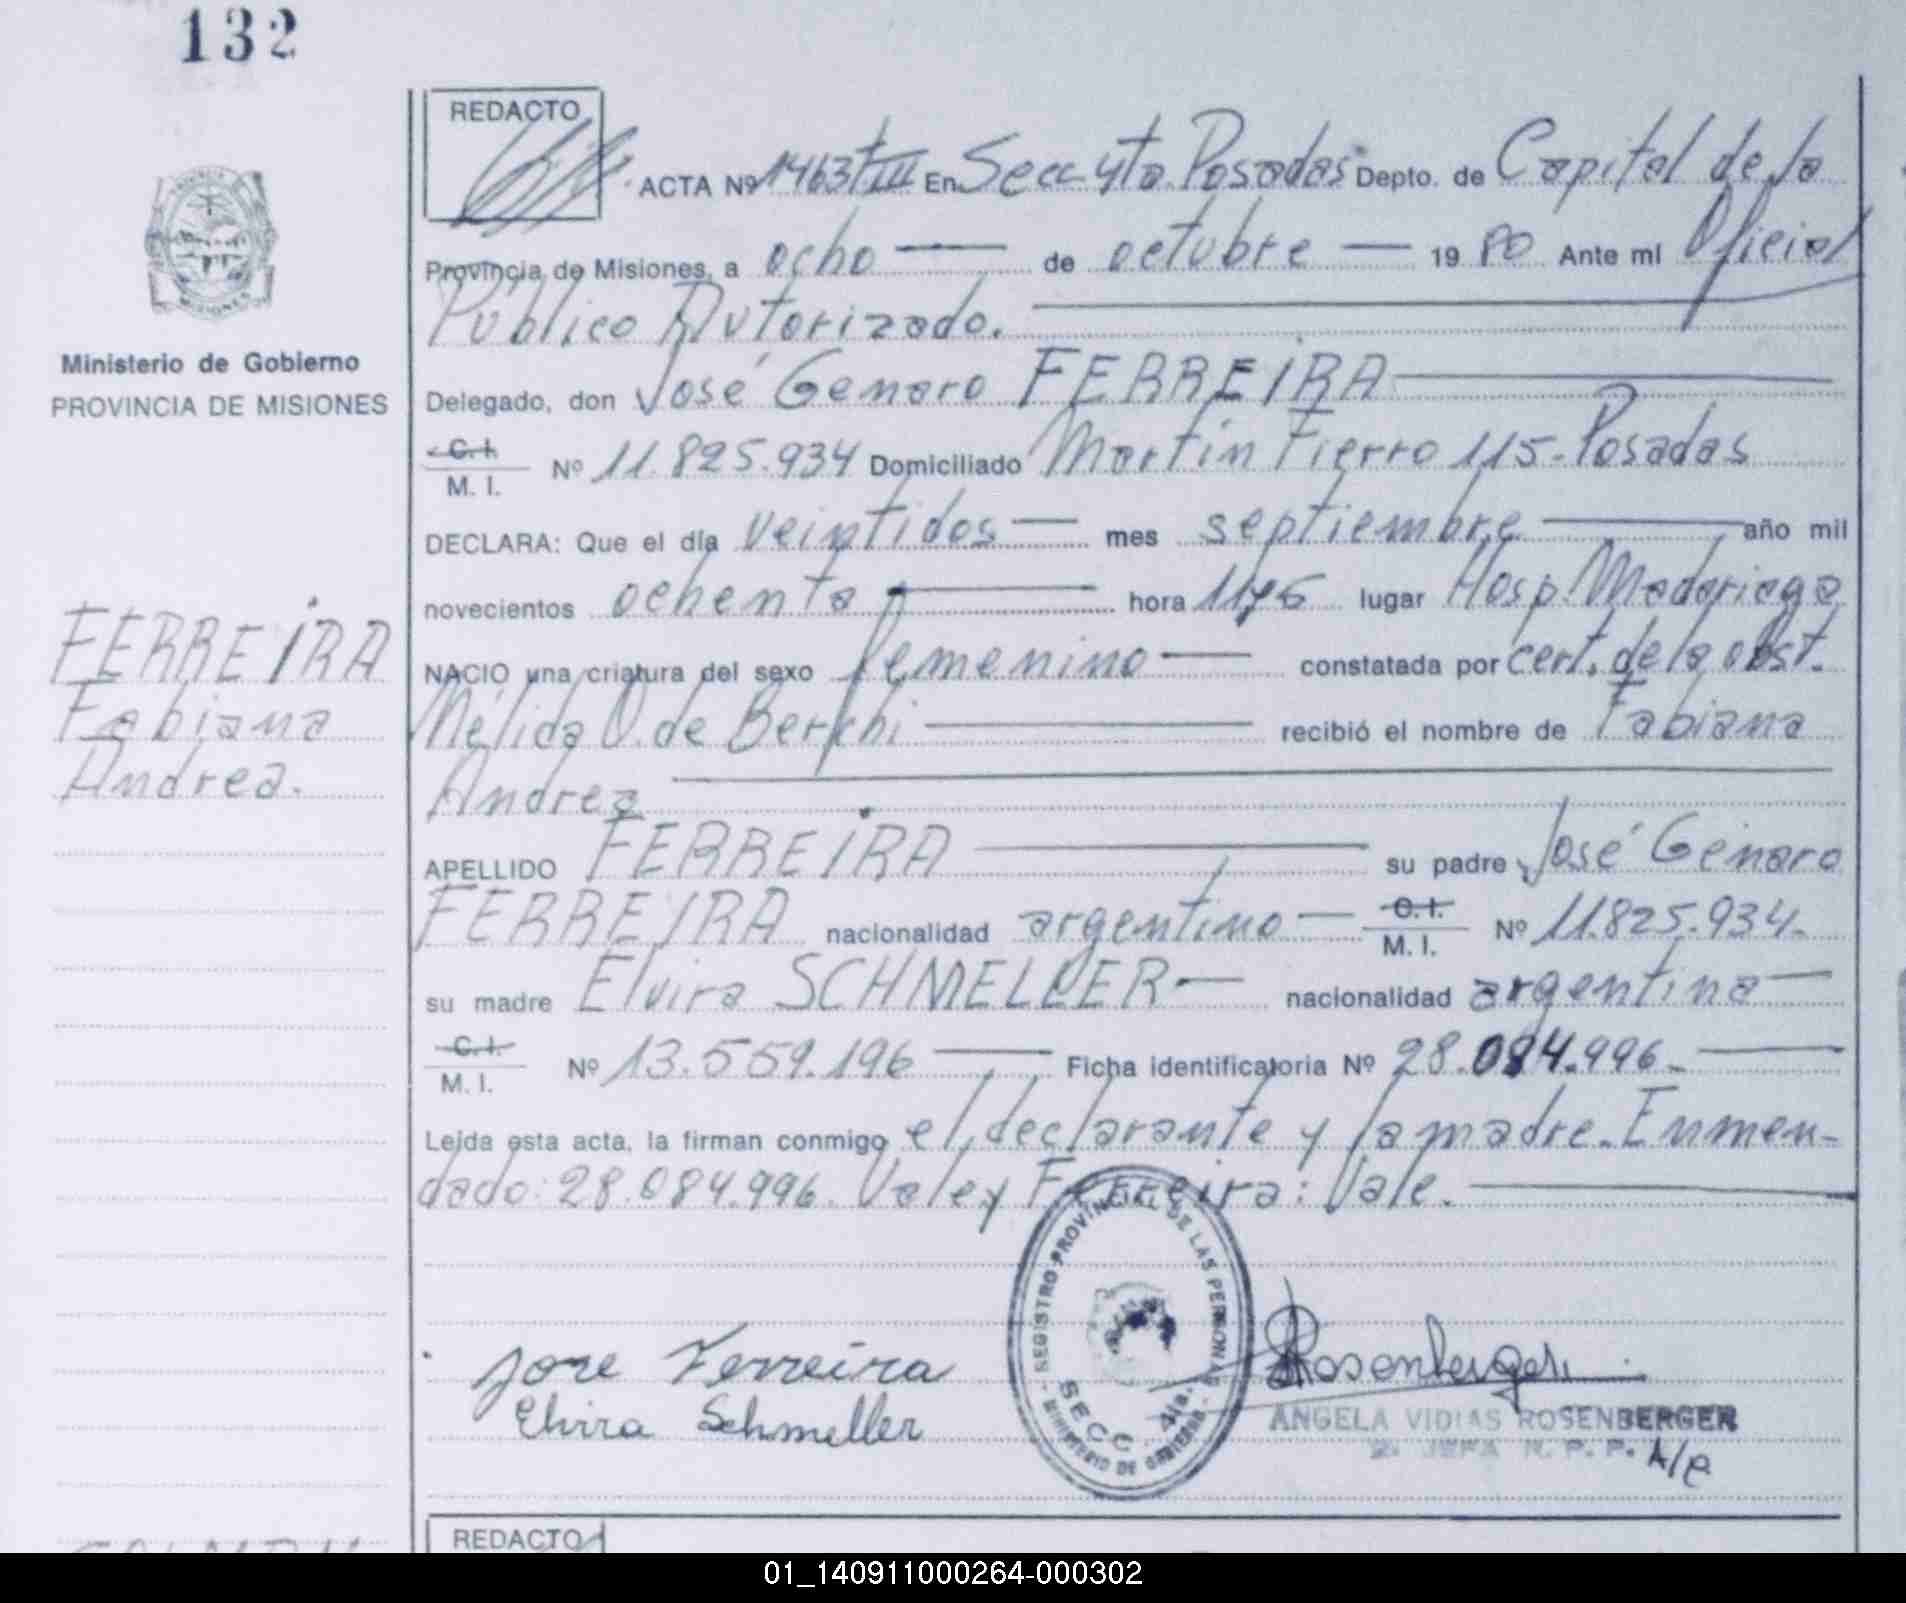 132
REDACTO
ACTA Nº 1463 t III En Secc 4ta. Posadas Depto. de Capital de la
Provincia de Misiones, a ocho de octubre 19 80 Ante mí Oficial
Público Autorizado.
Ministerio de Gobierno
PROVINCIA DE MISIONES
MISIONES
Delegado, don José Genaro FERREIRA
C.I. M. I. Nº 11.825.934 Domiciliado Martín Fierro 115-Posadas
DECLARA: Que el día veintidos mes septiembre año mil
novecientos ochenta hora lugar Hosp. Madariaga
NACIO una criatura del sexo femenino constatada por cert. de la obst.
Mélida O. de recibió el nombre de Fabiana
Andrea
FERREIRA
Fabiana
Andrea.
APELLIDO FERREIRA su padre José Genaro
FERREIRA nacionalidad argentino C.I. M. I. Nº 11.825.934.
su madre Elvira SCHMELLER nacionalidad argentina
C.I. M. I. Nº 13.559.196 Ficha identificatoria Nº 28.084.996.
Leída esta acta, la firman conmigo el declarante y la madre. Enmen-
dado: 28.084.996. Vale y Ferreira: Vale.
REGISTRO PROVINCIAL DE LAS PERSONAS
SECC. 4ta.
MINISTERIO DE GOBIERNO
Jose Ferreira
Elvira Schmeller
Rosenberger
ANGELA VIDIAS ROSENBERGER
JEFA R. P. P. A/C
REDACTO
01_140911000264-000302